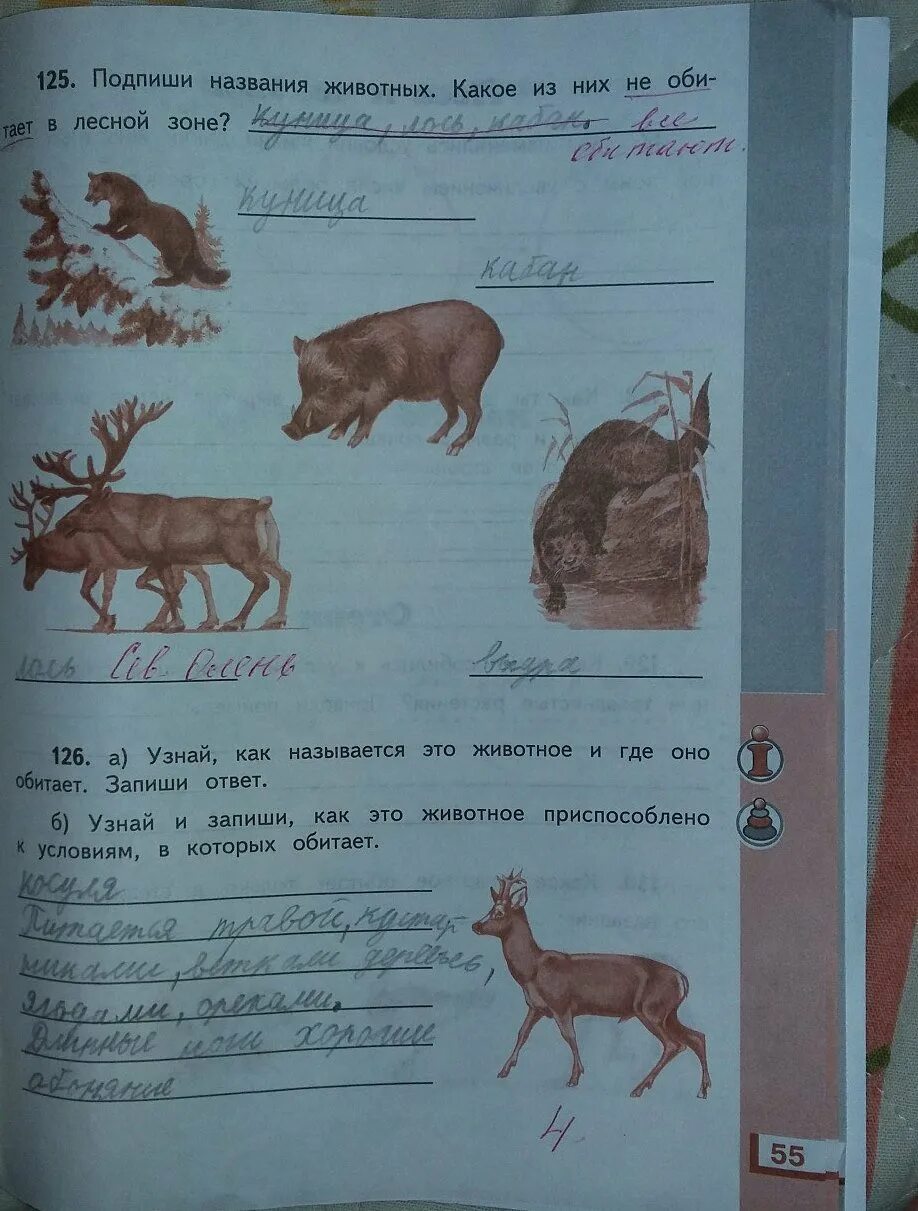 125. Подпиши названия животных. Какое из них не оби-
тает в лесной зоне? Куница, лось, кабан. все
обитают.
куница
кабан
лось Сев. Олень
выдра
126. а) Узнай, как называется это животное и где оно
обитает. Запиши ответ.
б) Узнай и запиши, как это животное приспособлено
к условиям, в которых обитает.
косуля
Питается травой, кустар-
никами, ветками деревьев,
ягодами, орехами.
Длинные ноги хорошие
обоняние
4
55